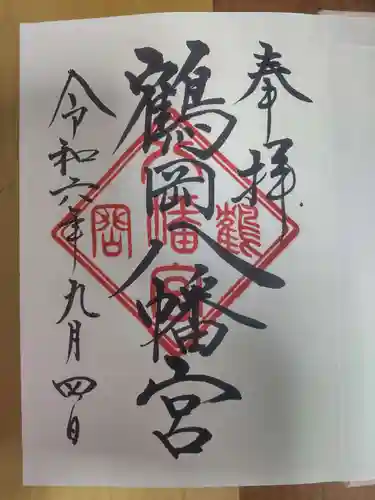 奉拝
鶴岡八幡宮
令和六年九月四日
鶴
八幡宮
岡